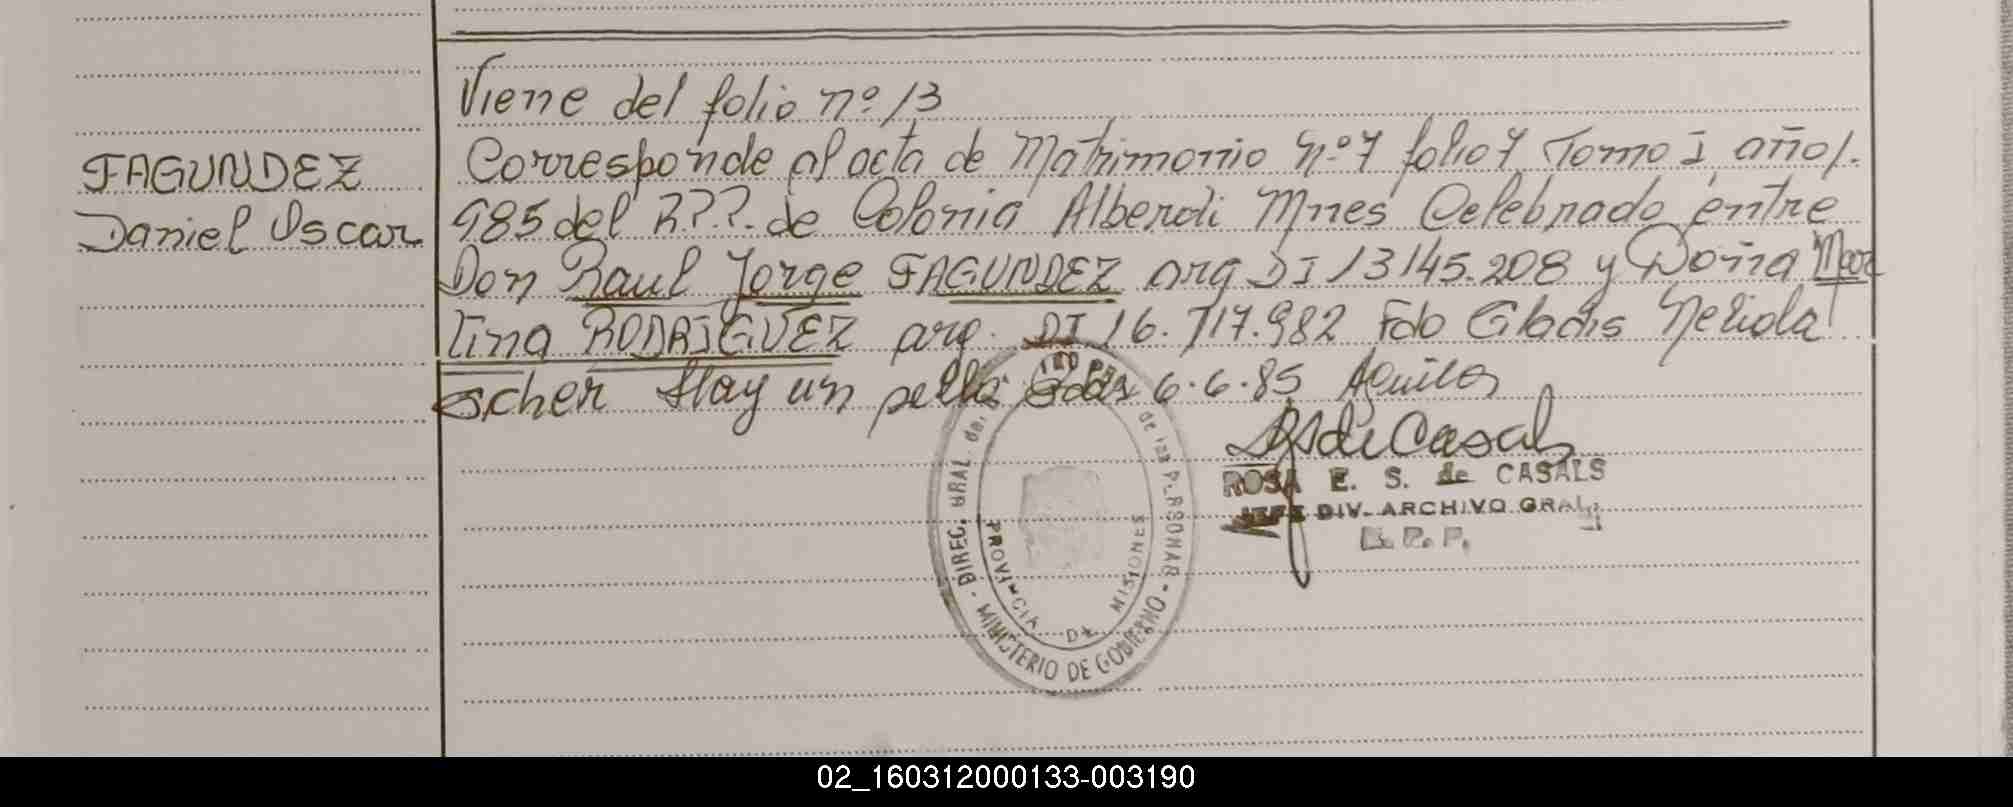 Viene del folio nº 13
FAGUNDEZ
Daniel Oscar
Corresponde al acta de Matrimonio Nº 7 folio 7 Tomo I año 1.
985 del R??. de Colonia Alberdi Mnes Celebrado entre
Don Raul Jorge FAGUNDEZ arg DI 13145.208 y Doña Mar
tina RODRIGUEZ arg. DI 16.717.982 Fdo Gladis
scher Hay un 6.6.85
ROSA E. S. de CASALS
JEFE DIV. ARCHIVO GRAL.
R. P. P.
DIREC. GRAL. del de las PERSONAS - MINISTERIO DE GOBIERNO -
PROVINCIA DE MISIONES
02_160312000133-003190